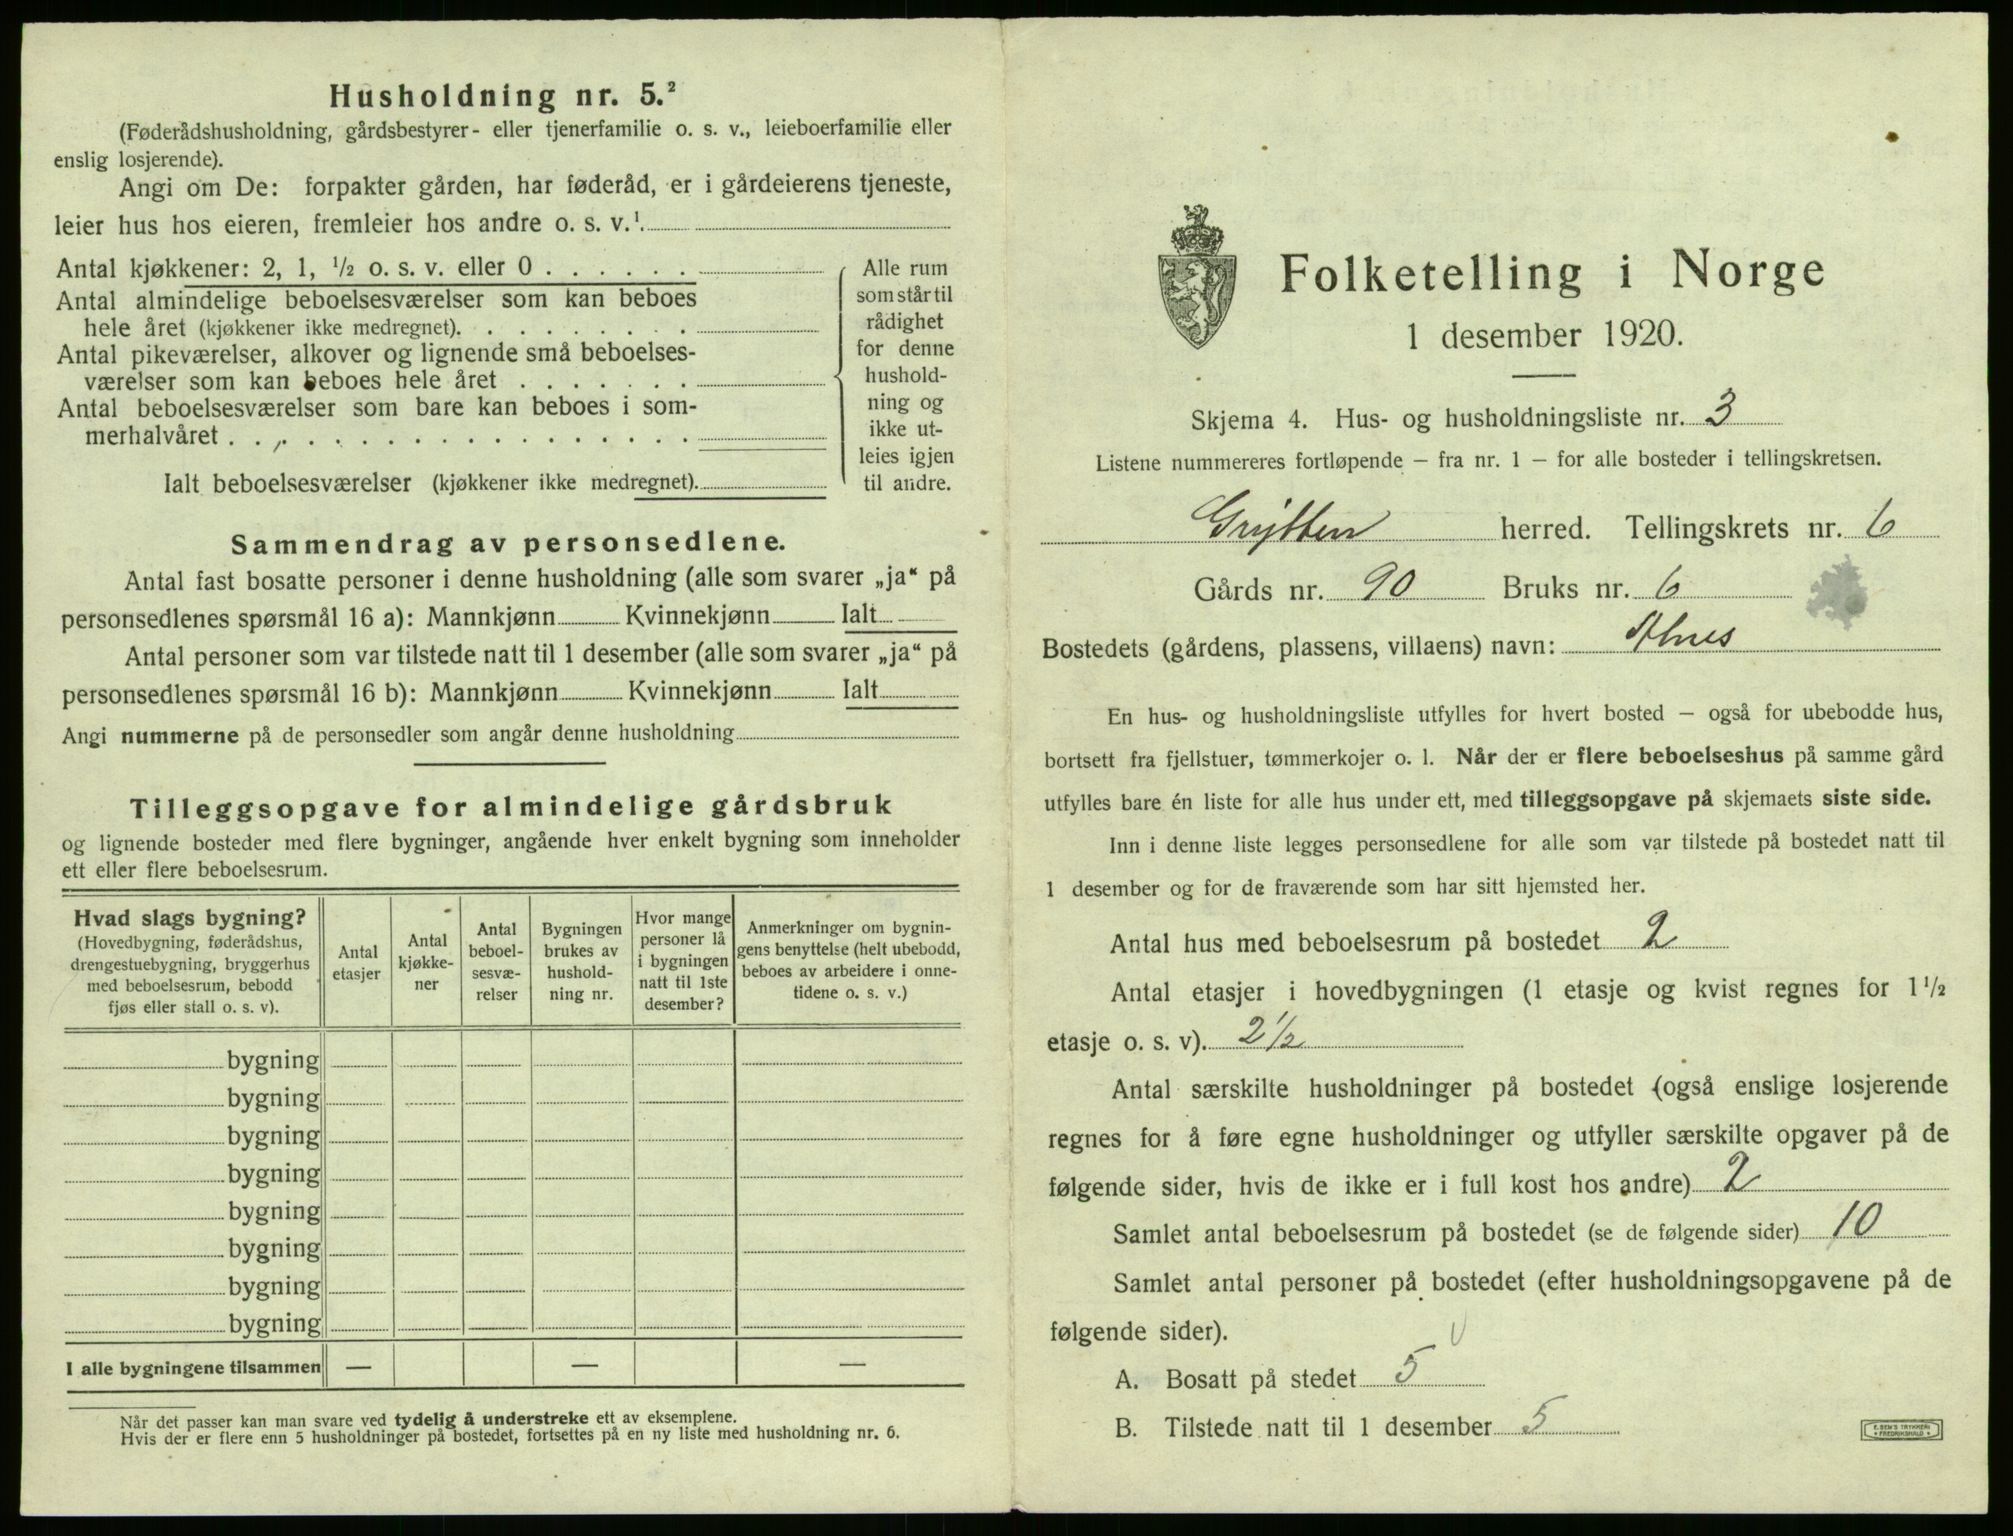 Husholdning nr. 5.²
(Føderådshusholdning, gårdsbestyrer- eller tjenerfamilie o. s. v., leieboerfamilie eller
enslig losjerende).
Angi om De: forpakter gården, har føderåd, er i gårdeierens tjeneste,
leier hus hos eieren, fremleier hos andre o. s. v.¹.
Antal kjøkkener: 2, 1, ½ o. s. v. eller 0 . . . . . .
Antal almindelige beboelsesværelser som kan beboes
hele året (kjøkkener ikke medregnet). . . . . . . . .
Antal pikeværelser, alkover og lignende små beboelses-
værelser som kan beboes hele året . . . . . . .
Antal beboelsesværelser som bare kan beboes i som-
merhalvåret . . . . . . . . . . . . . . . . . .
Ialt beboelsesværelser (kjøkkener ikke medregnet).
Alle rum
som står til
rådighet
for denne
hushold-
ning og
ikke ut-
leies igjen
til andre.
Sammendrag av personsedlene.
Antal fast bosatte personer i denne husholdning (alle som svarer „ja“ på
personsedlenes spørsmål 16 a): Mannkjønn Kvinnekjønn Ialt
Antal personer som var tilstede natt til 1 desember (alle som svarer „ja“ på
personsedlenes spørsmål 16 b): Mannkjønn Kvinnekjønn Ialt
Angi nummerne på de personsedler som angår denne husholdning
Tilleggsopgave for almindelige gårdsbruk
og lignende bosteder med flere bygninger, angående hver enkelt bygning som inneholder
ett eller flere beboelsesrum.
Hvad slags bygning?
(Hovedbygning, føderådshus,
drengestuebygning, bryggerhus
med beboelsesrum, bebodd
fjøs eller stall o. s. v).
Antal
etasjer
Antal
kjøkke-
ner
Antal
beboel-
sesvæ-
relser
Bygningen
brukes av
hushold-
ning nr.
Hvor mange
personer lå
i bygningen
natt til 1ste
desember?
Anmerkninger om bygnin-
gens benyttelse (helt ubebodd,
beboes av arbeidere i onne-
tidene o. s. v.)
bygning
bygning
bygning
bygning
bygning
bygning
bygning
bygning
I alle bygningene tilsammen — — —
Når det passer kan man svare ved tydelig å understreke ett av eksemplene.
Hvis der er flere enn 5 husholdninger på bostedet, fortsettes på en ny liste med husholdning nr. 6.
Folketelling i Norge
1 desember 1920.
Skjema 4. Hus- og husholdningsliste nr. 3
Listene nummereres fortløpende – fra nr. 1 – for alle bosteder i tellingskretsen.
Grytten herred. Tellingskrets nr. 6
Gårds nr. 90 Bruks nr. 6
Bostedets (gårdens, plassens, villaens) navn: Alnes
En hus- og husholdningsliste utfylles for hvert bosted – også for ubebodde hus,
bortsett fra fjellstuer, tømmerkojer o. l. Når der er flere beboelseshus på samme gård
utfylles bare én liste for alle hus under ett, med tilleggsopgave på skjemaets siste side.
Inn i denne liste legges personsedlene for alle som var tilstede på bostedet natt til
1 desember og for de fraværende som har sitt hjemsted her.
Antal hus med beboelsesrum på bostedet 2
Antal etasjer i hovedbygningen (1 etasje og kvist regnes for 1½
etasje o. s. v). 2½
Antal særskilte husholdninger på bostedet (også enslige losjerende
regnes for å føre egne husholdninger og utfyller særskilte opgaver på de
følgende sider, hvis de ikke er i full kost hos andre) 2
Samlet antal beboelsesrum på bostedet (se de følgende sider) 10
Samlet antal personer på bostedet (efter husholdningsopgavene på de
følgende sider).
A. Bosatt på stedet 5
B. Tilstede natt til 1 desember 5
E. SEM'S TRYKKERI
FREDRIKSHALD